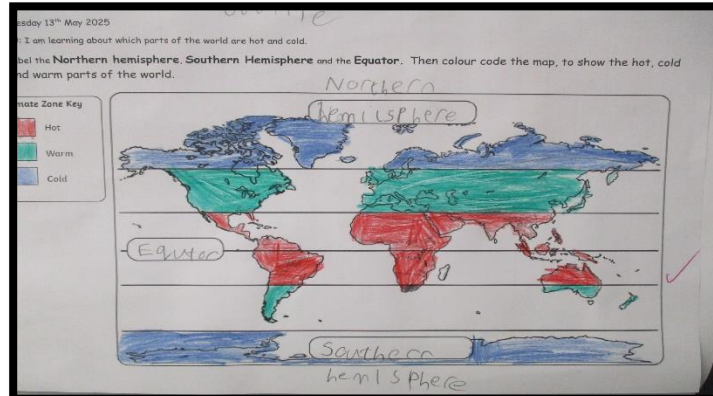 esday 13th May 2025
: I am learning about which parts of the world are hot and cold.
bel the Northern hemisphere, Southern Hemisphere and the Equator. Then colour code the map, to show the hot, cold
nd warm parts of the world.
Northern
hemisphere
mate Zone Key
Hot
Warm
Cold
Equator
Southern
hemisphere